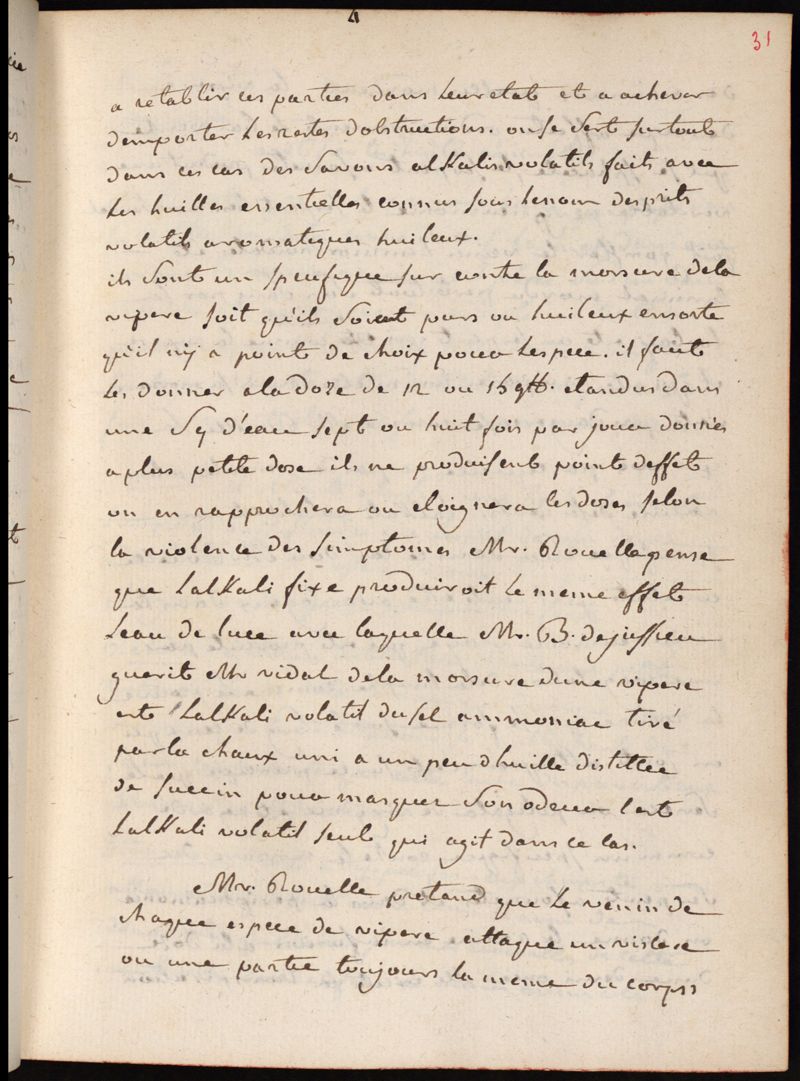 4
31
a retablir ces parties dans leur etat et a achever
demporter les restes dobstructions. on se sert surtout
dans ces cas des savons alkalis volatils faits avec
les huilles essentielles connus sous lenom desprits
volatils aromatiques huileux.
ils sont un specifique sur contre la morsure dela
vipere soit qu'ils soient purs ou huileux ensorte
qu'il n'y a point de choix pour lespece. il faut
les donner ala doze de 12 ou 15 gtt. etandus dans
une d'eau sept ou huit fois par jour donnés
a plus petite dose ils ne produisent point deffet
on en rapprochera ou eloignera les doses selon
la violence des simptomes Mr. Rouelle pense
que lalkali fixe produiroit le meme effet
leau de luce avec laquelle Mr. B. dejussieu
guerit Mr vidal dela morsure dune vipere
est lalkali volatil du sel ammoniac tiré
par la chaux uni a un peu dhuille distillee
de succin pour masquer son odeur c'est
lalkali volatil seul qui agit dans ce cas.
Mr. Rouelle pretend que le venin de
chaque espece de vipere attaque un viscere
ou une partie toujours la meme du corps